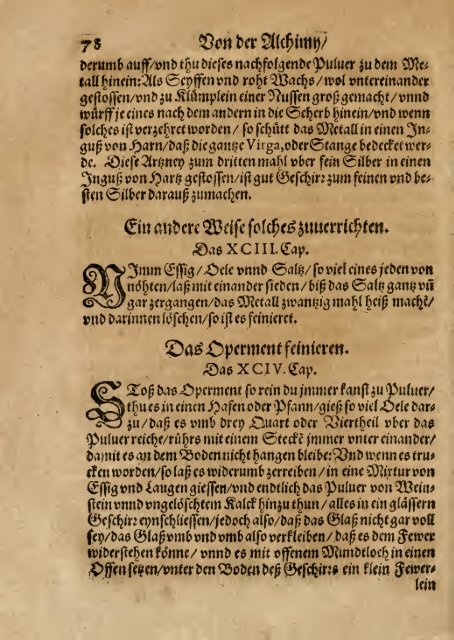 78 Von der Alchimy/
derumb auff/vnd thu dieses nachfolgende Puluer zu dem Me-
tall hinein: Als Seyffen vnd roht Wachs/wol vntereinander
gestossen/vnd zu Klümplein einer Nussen groß gemacht/vnnd
würff je eines nach dem andern in die Scherb hinein/vnd wenn
solches ist verzehret worden/so schütt das Metall in einen In-
guß von Harn/daß die gantze Virga, oder Stange bedecket wer-
de. Diese Artzney zum dritten mahl vber fein Silber in einen
Inguß von Hartz gestossen/ist gut Geschirr zum feinen vnd be-
sten Silber darauß zumachen.
Ein andere Weise solches zuuerrichten.
Das XCIII. Cap.
NImm Essig/Oele vnnd Saltz/so viel eines jeden von
nöhten/laß mit einander sieden/biß das Saltz gantz vñ
gar zergangen/das Metall zwantzig mahl heiß macht/
vnd darinnen löschen/so ist es feinieret.
Das Operment feinieren.
Das XCIV. Cap.
SToß das Operment so rein du jmmer kanst zu Puluer/
thu es in einen Hafen oder Pfann/gieß so viel Oele dar-
zu/daß es vmb drey Quart oder Viertheil vber das
Puluer reiche/rührs mit einem Steckē jmmer vnter einander/
damit es an dem Boden nicht hangen bleibe: Vnd wenn es tru-
cken worden/so laß es widerumb zerreiben/in eine Mixtur von
Essig vnd Laugen giessen/vnd endtlich das Puluer von Wein-
stein vnnd vngelöschtem Kalck hinzu thun/alles in ein gläsern
Geschirr eynschliessen/jedoch also/daß das Glaß nicht gar voll
sey/das Glaß vmb vnd vmb also verkleiben/daß es dem Fewer
widerstehen könne/vnnd es mit offenem Mundtloch in einen
Offen setzen/vnter den Boden deß Geschirrs ein klein Fewer-
lein